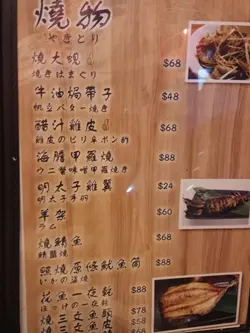 燒物
やきとり
燒大蜆 $68
焼きはまぐり
牛油焗帶子 $48
帆立バター焼き
醋汁雞皮 $68
雞皮のピリ辛ポン酢
海膽甲羅燒 $88
ウニ蟹味噌甲羅焼き
明太子雞翼 $24
明太子手羽
羊架 $60
ラム
燒鯖魚 $68
鯖塩焼
照燒原條魷魚筒 $88
いかの姿焼
花魚一夜乾 $88
ほっけの一夜干
燒三文魚 $58
燒三文魚 $